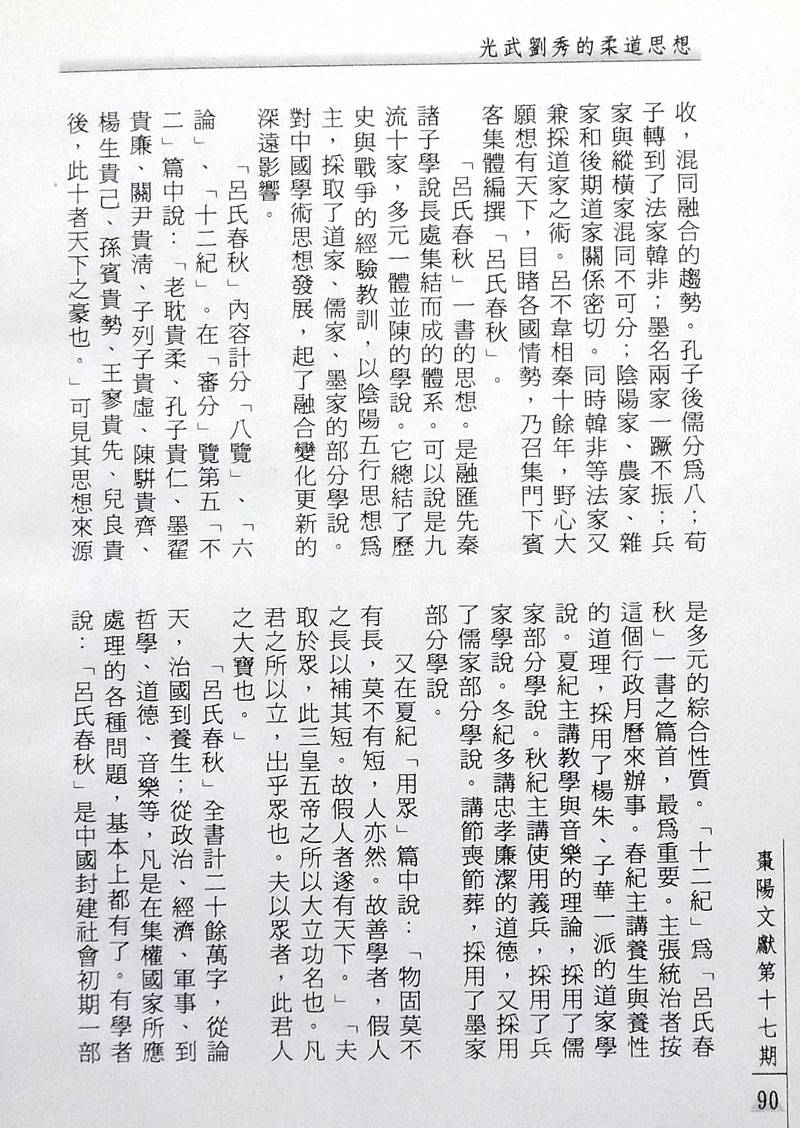 光武劉秀的柔道思想
收，混同融合的趨勢。孔子後儒分為八；荀
子轉到了法家韓非；墨名兩家一蹶不振；兵
家與縱橫家混同不可分；陰陽家、農家、雜
家和後期道家關係密切。同時韓非等法家又
兼採道家之術。呂不韋相秦十餘年，野心大
願想有天下，目睹各國情勢，乃召集門下賓
客集體編撰「呂氏春秋」。
「呂氏春秋」一書的思想。是融匯先秦
諸子學說長處集結而成的體系。可以說是九
流十家，多元一體並陳的學說。它總結了歷
史與戰爭的經驗教訓，以陰陽五行思想為
主，採取了道家、儒家、墨家的部分學說。
對中國學術思想發展，起了融合變化更新的
深遠影響。
「呂氏春秋」內容計分「八覽」、「六
論」、「十二紀」。在「審分」覽第五「不
二」篇中說：「老耽貴柔、孔子貴仁、墨翟
貴廉、關尹貴清、子列子貴虛、陳駢貴齊、
楊生貴己、孫賓貴勢、王寥貴先、兒良貴
後，此十者天下之豪也。」可見其思想來源
是多元的綜合性質。「十二紀」為「呂氏春
秋」一書之篇首，最為重要。主張統治者按
這個行政月曆來辦事。春紀主講養生與養性
的道理，採用了楊朱、子華一派的道家學
說。夏紀主講教學與音樂的理論，採用了儒
家部分學說。秋紀主講使用義兵，採用了兵
家學說。冬紀多講忠孝廉潔的道德，又採用
了儒家部分學說。講節喪節葬，採用了墨家
部分學說。
又在夏紀「用眾」篇中說：「物固莫不
有長，莫不有短，人亦然。故善學者，假人
之長以補其短。故假人者遂有天下。」「夫
取於眾，此三皇五帝之所以大立功名也。凡
君之所以立，出乎眾也。夫以眾者，此君人
之大寶也。」
「呂氏春秋」全書計二十餘萬字，從論
天，治國到養生；從政治、經濟、軍事、到
哲學、道德、音樂等，凡是在集權國家所應
處理的各種問題，基本上都有了。有學者
說：「呂氏春秋」是中國封建社會初期一部
棗陽文獻第十七期
90